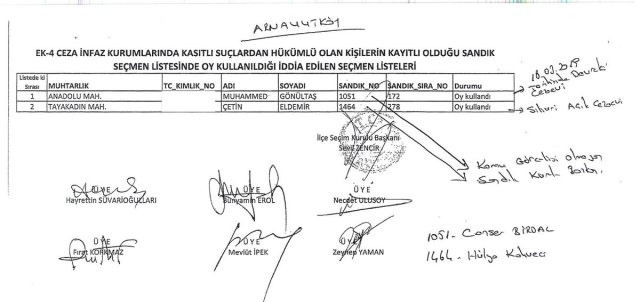 ARNAVUTKÖY
EK-4 CEZA İNFAZ KURUMLARINDA KASITLI SUÇLARDAN HÜKÜMLÜ OLAN KİŞİLERİN KAYITLI OLDUĞU SANDIK
SEÇMEN LİSTESİNDE OY KULLANILDIĞI İDDİA EDİLEN SEÇMEN LİSTELERİ
Listede ki Sırası MUHTARLIK TC_KIMLIK_NO ADI SOYADI SANDIK_NO SANDIK_SIRA_NO Durumu
1 ANADOLU MAH. MUHAMMED GÖNÜLTAŞ 1051 172 Oy kullandı
2 TAYAKADIN MAH. ÇETİN ELDEMİR 1464 278 Oy kullandı
Cezaevi
Silivri Açık Cezaevi
İlçe Seçim Kurulu Başkanı
ZENCİR
Kamu Görevlisi olmayan
Sandık Kurulu
ÜYE
Hayrettin SÜVARİOĞULLARI
ÜYE
Bünyamin EROL
ÜYE
Necdet ULUSOY
ÜYE
Fırat KORKMAZ
ÜYE
Mevlüt İPEK
ÜYE
Zeynep YAMAN
1051- BİRDAL
1464- Hülya